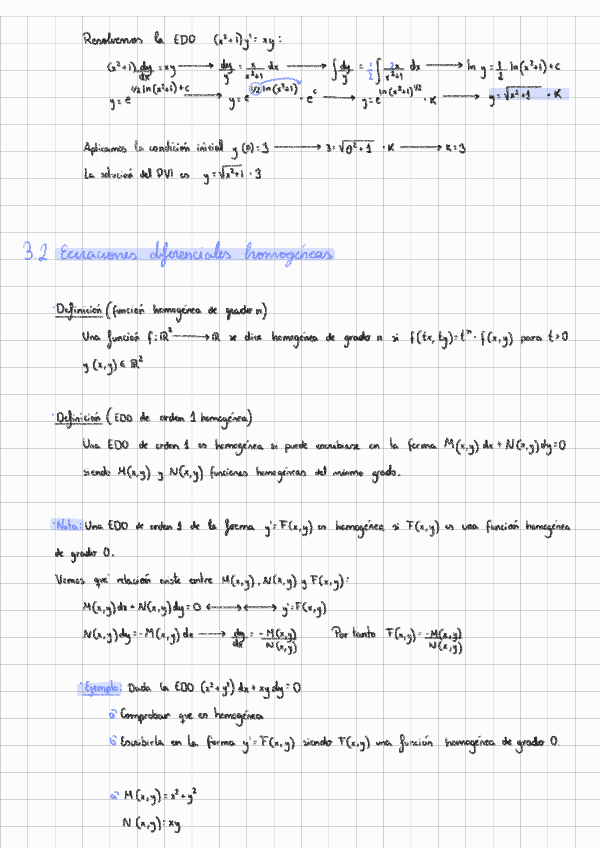 Resolvemos la EDO (x²+1)y'=xy:
(x²+1) dy/dx = xy ⟶ dy/y = x/(x²+1) dx ⟶ ∫ dy/y = 1/2 ∫ 2x/(x²+1) dx ⟶ ln y = 1/2 ln(x²+1)+C
y=e^(1/2 ln(x²+1)+C) ⟶ y=e^(1/2 ln(x²+1)) · e^C ⟶ y=e^(ln(x²+1)^(1/2)) · K ⟶ y=√(x²+1) · K
Aplicamos la condición inicial y(0)=3 ⟶ 3=√(0²+1) · K ⟶ K=3
La solución del PVI es y=√(x²+1) · 3
3.2 Ecuaciones diferenciales homogéneas
Definición (función homogénea de grado n)
Una función f:ℝ² ⟶ ℝ se dice homogénea de grado n si f(tx, ty)=tⁿ · f(x,y) para t>0
y (x,y) ∈ ℝ²
Definición (EDO de orden 1 homogénea)
Una EDO de orden 1 es homogénea si puede escribirse en la forma M(x,y) dx + N(x,y)dy=0
siendo M(x,y) y N(x,y) funciones homogéneas del mismo grado.
Nota: Una EDO de orden 1 de la forma y'=F(x,y) es homogénea si F(x,y) es una función homogénea
de grado 0.
Veamos que relación existe entre M(x,y), N(x,y) y F(x,y):
M(x,y)dx + N(x,y)dy=0 ⟷⟷ y'=F(x,y)
N(x,y)dy=-M(x,y) dx ⟶ dy/dx = -M(x,y)/N(x,y) Por tanto F(x,y)= -M(x,y)/N(x,y)
Ejemplo: Dada la EDO (x²+y²) dx + xy dy=0
a Comprobar que es homogénea
b Escribirla en la forma y'=F(x,y) siendo F(x,y) una función homogénea de grado 0.
a M(x,y)=x²+y²
N(x,y)=xy